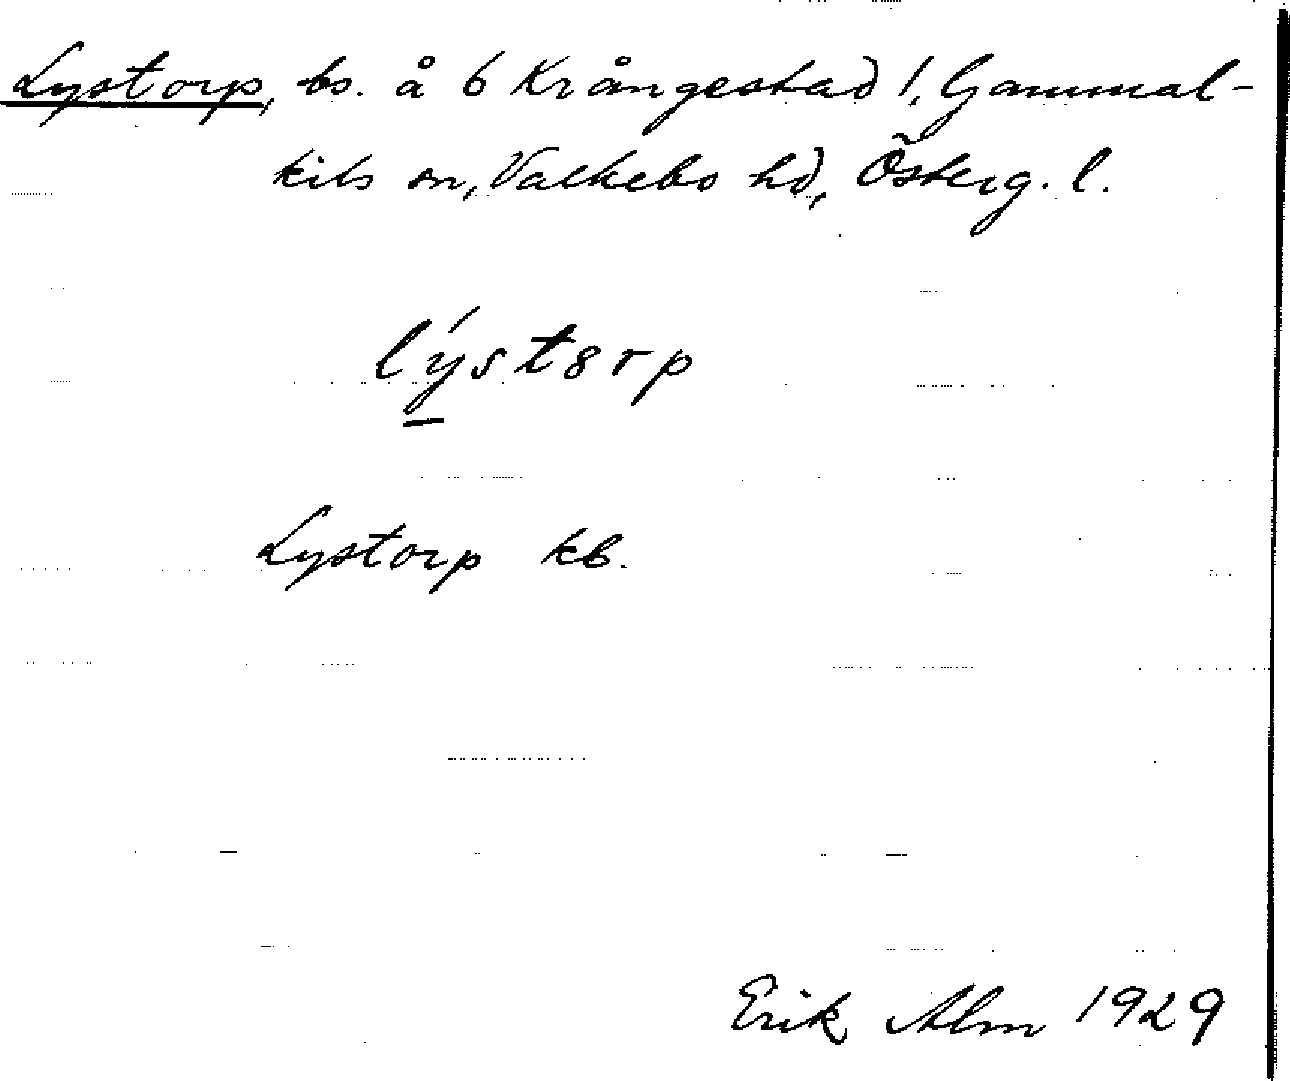 Lystorp, bs. å 6 Krångestad 1, Gammal-
kils sn, Valkebo hd, Österg. l.
lýst8rp
Lystorp kb.
Erik Alm 1929